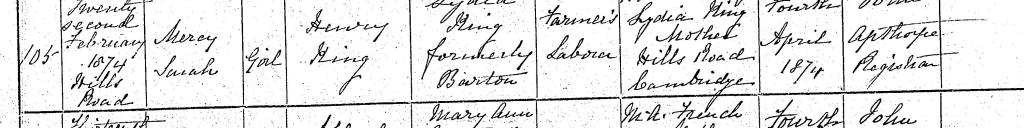 Twenty second February 1874 Hills Road
105
Mercy Sarah
Girl
Henry King
Lydia King formerly Barton
Farmer's Labourer
Lydia King Mother Hills Road Cambridge
Fourth April 1874
John Apthorpe Registrar
Mary Ann
M.A. French
Fourth
John